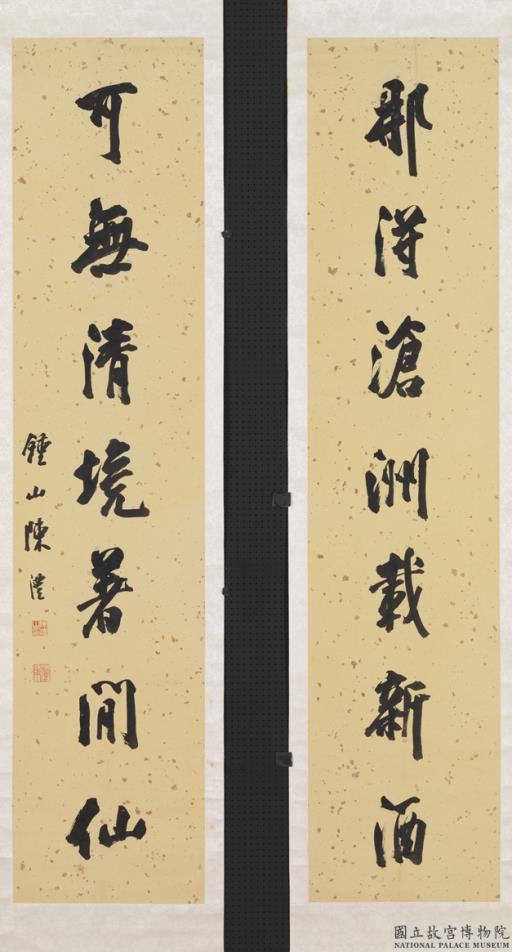 那得滄洲載新酒
可無清境著閒仙
鍾山陳澧
國立故宮博物院
NATIONAL PALACE MUSEUM